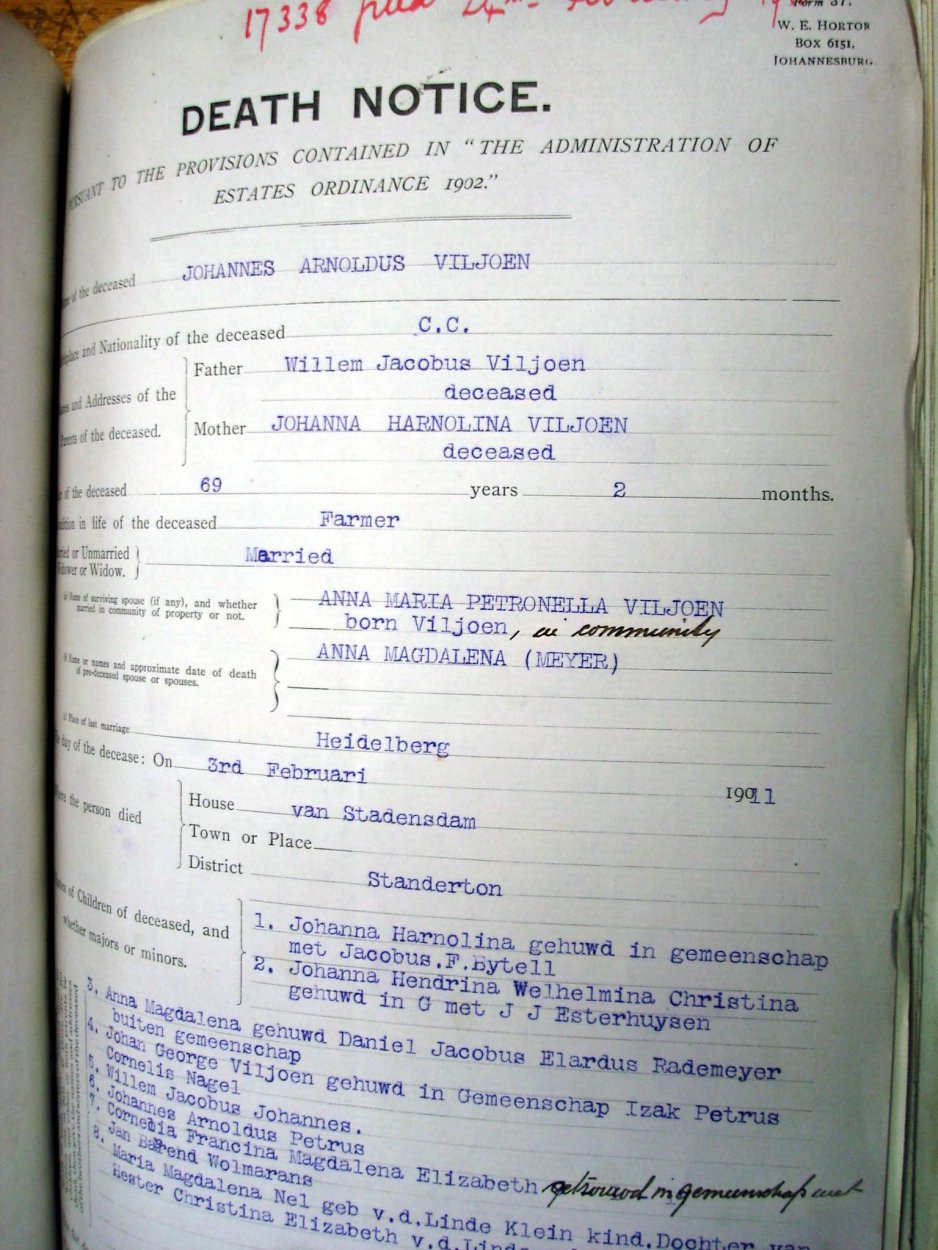 17338 filed 24th February
Form 37.
W. E. HORTOR
BOX 6151,
JOHANNESBURG.
DEATH NOTICE.
TO THE PROVISIONS CONTAINED IN "THE ADMINISTRATION OF
ESTATES ORDINANCE 1902."
of the deceased JOHANNES ARNOLDUS VILJOEN
and Nationality of the deceased C.C.
and Addresses of the
of the deceased.
Father Willem Jacobus Viljoen
deceased
Mother JOHANNA HARNOLINA VILJOEN
deceased
of the deceased 69 years 2 months.
in life of the deceased Farmer
or Unmarried
or Widow. Married
Name of surviving spouse (if any), and whether
married in community of property or not.
ANNA MARIA PETRONELLA VILJOEN
born Viljoen, in community
Name or names and approximate date of death
of pre-deceased spouse or spouses.
ANNA MAGDALENA (MEYER)
Place of last marriage Heidelberg
day of the decease: On 3rd Februari 1911
the person died
House van Stadensdam
Town or Place
District Standerton
of Children of deceased, and
whether majors or minors.
1. Johanna Harnolina gehuwd in gemeenschap
met Jacobus.F.Bytell
2. Johanna Hendrina Welhelmina Christina
gehuwd in G met J J Esterhuysen
3. Anna Magdalena gehuwd Daniel Jacobus Elardus Rademeyer
buiten gemeenschap
4. Johan George Viljoen gehuwd in Gemeenschap Izak Petrus
Cornelis Nagel
5. Willem Jacobus Johannes.
6. Johannes Arnoldus Petrus
7. Cornelia Francina Magdalena Elizabeth getrouwd in gemeenschap met
Jan Barend Wolmarans
8. Maria Magdalena Nel geb v.d.Linde Klein kind.Dochter van
Hester Christina Elizabeth v.d.Linde